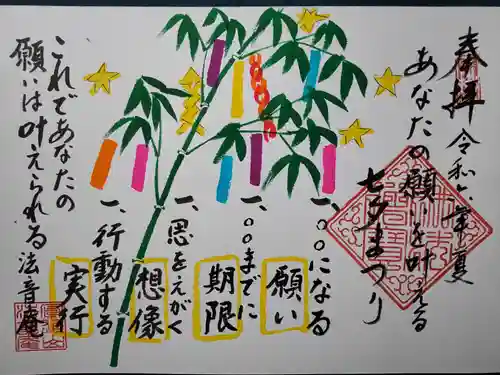 奉拝 令和六年夏
あなたの願いを叶える
七夕まつり
一、〇〇になる
願い
一、〇〇までに
期限
一、思をえがく
想像
一、行動する
実行
これであなたの
願いは叶えられる 法音庵